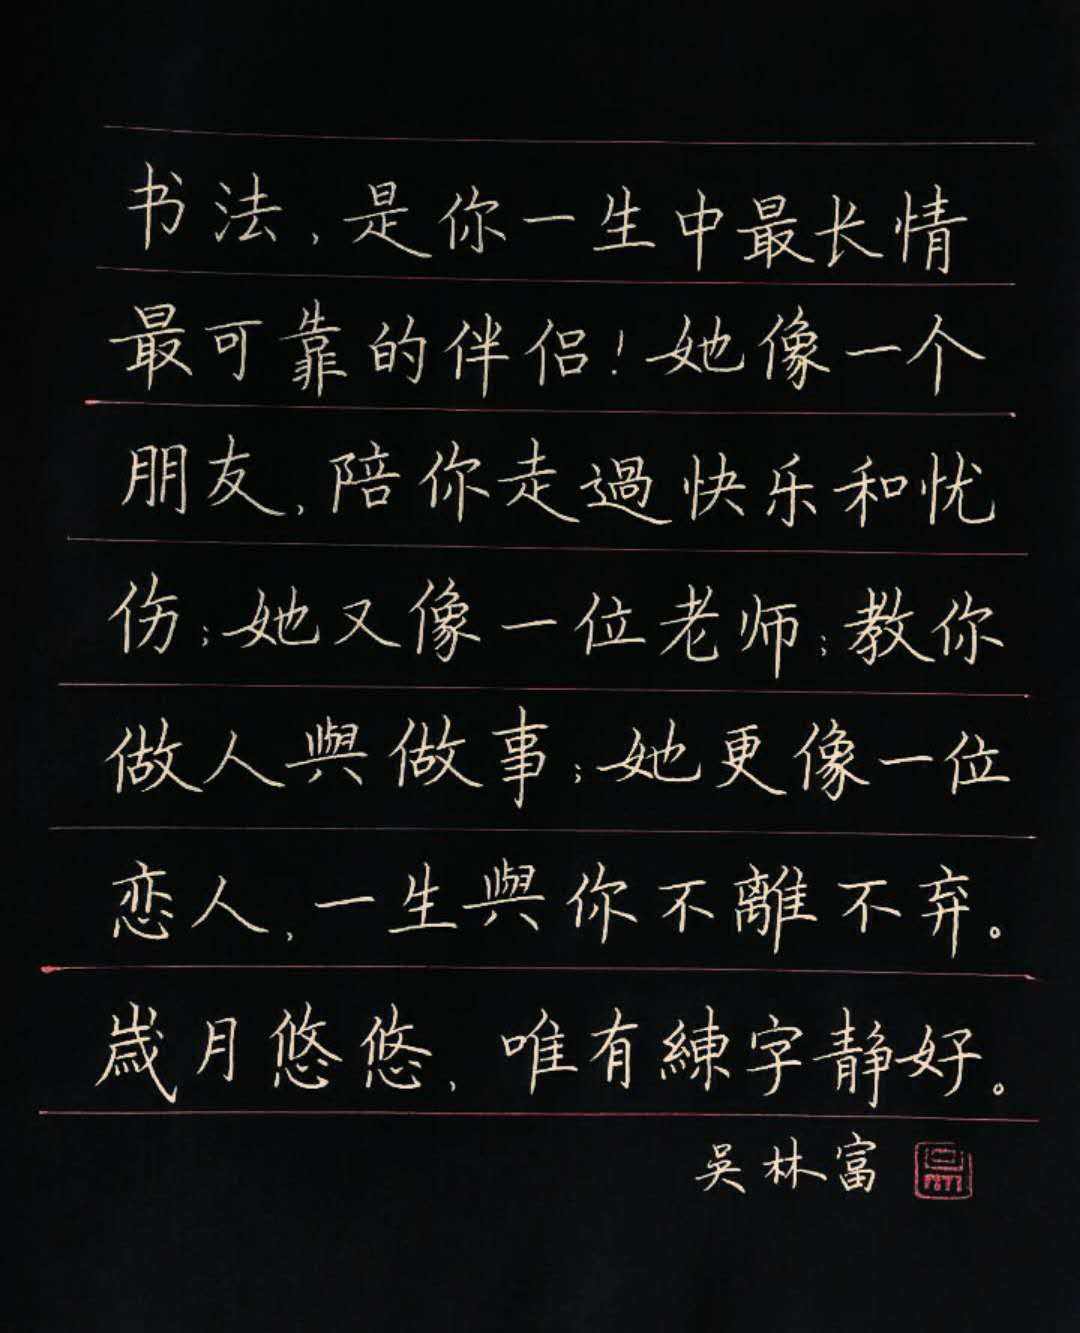 书法，是你一生中最长情
最可靠的伴侣！她像一个
朋友，陪你走過快乐和忧
伤；她又像一位老师；教你
做人與做事；她更像一位
恋人，一生與你不離不弃。
歲月悠悠，唯有練字静好。
吳林富